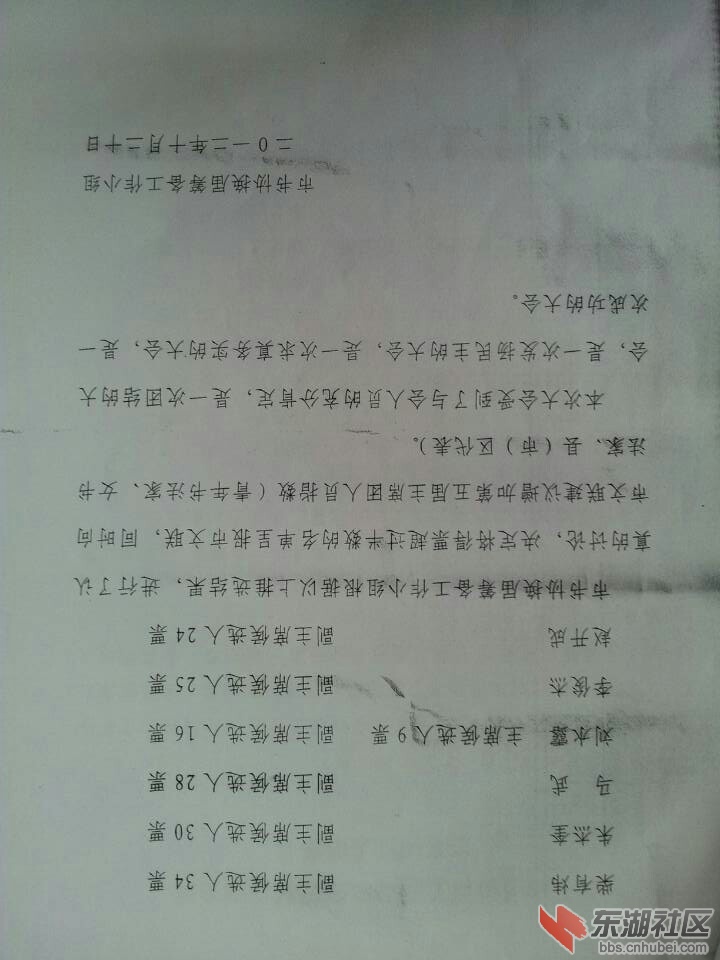 柴有炜 副主席候选人 34 票
朱杰奎 副主席候选人 30 票
马 武 副主席候选人 28 票
刘水露 主席候选人 9 票 副主席候选人 16 票
李俊杰 副主席候选人 25 票
赵开成 副主席候选人 24 票
市书协换届筹备工作小组根据以上推选结果，进行了认
真的讨论，决定将得票超过半数的名单呈报市文联，同时向
市文联建议增加第五届主席团人员指数（青年书法家、女书
法家、县（市）区代表）。
本次大会受到了与会人员的充分肯定，是一次团结的大
会，是一次发扬民主的大会，是一次求真务实的大会，是一
次成功的大会。
市书协换届筹备工作小组
二0一二年十月二十日
东湖社区
bbs.cnhubei.com